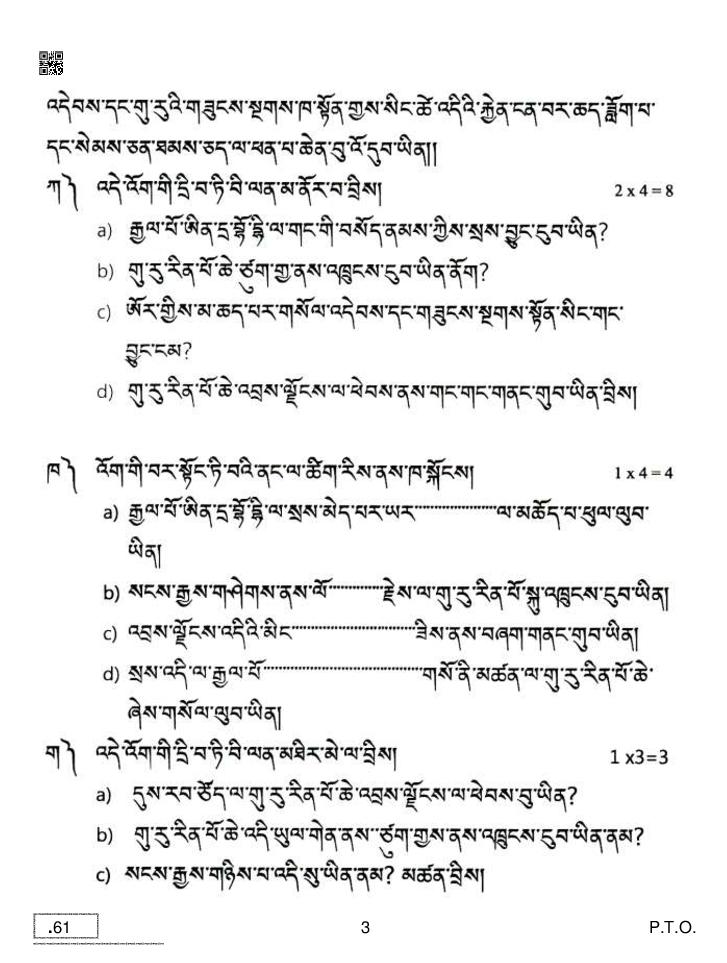 འདེབས་དང་གུ་རུའི་གཟུངས་སྔགས་ཁ་སྟོན་གྱས་སིང་ཚེ་འདིའི་རྐྱེན་ངན་བར་ཆད་ཟློག་པ་
དང་སེམས་ཅན་ཐམས་ཅད་ལ་ཕན་པ་ཆེན་བུ་འོ་དུབ་ཡིན།།
ཀ༽ འདེ་འོག་གི་དྲི་བ་ཏི་བི་ལན་མ་ནོར་བ་བྲིས། 2 x 4 = 8
a) རྒྱལ་པོ་ཨིན་དྲ་བྷོ་དྷི་ལ་གང་གི་བསོད་ནམས་ཀྱིས་སྲས་བྱུང་དུབ་ཡིན?
b) གུ་རུ་རིན་པོ་ཆེ་ཙུག་གྱ་ནས་འཁྲུངས་དུབ་ཡིན་ནོག?
c) ཨོར་གྱིས་མ་ཆད་པར་གསོལ་འདེབས་དང་གཟུངས་སྔགས་སྟོན་སིང་གང་
བྱུང་ངམ?
d) གུ་རུ་རིན་པོ་ཆེ་འབྲས་ལྗོངས་ལ་ཕེབས་ནས་གང་གང་གནང་གུབ་ཡིན་བྲིས།
ཁ༽ འོག་གི་བར་སྟོང་ཏི་བའི་ནང་ལ་ཚིག་རིས་ནས་ཁ་སྐོངས། 1 x 4 = 4
a) རྒྱལ་པོ་ཨིན་དྲ་བྷོ་དྷི་ལ་སྲས་མེད་པར་ཡར་....................ལ་མཆོད་པ་ཕུལ་ལུབ་
ཡིན།
b) སངས་རྒྱས་གཤེགས་ནས་ལོ་.............རྗེས་ལ་གུ་རུ་རིན་པོ་སྐུ་འཁྲུངས་དུབ་ཡིན།
c) འབྲས་ལྗོངས་འདིའི་མིང་..............................ཟིས་ནས་བཞག་གནང་གུབ་ཡིན།
d) སྲས་འདི་ལ་རྒྱལ་པོ་.......................................གསོ་ནི་མཚན་ལ་གུ་རུ་རིན་པོ་ཆེ་
ཞེས་གསོལ་ལུབ་ཡིན།
ག༽ འདེ་འོག་གི་དྲི་བ་ཏི་བི་ལན་མཐིར་མེ་ལ་བྲིས། 1 x3=3
a) དུས་རབ་ཙོད་ལ་གུ་རུ་རིན་པོ་ཆེ་འབྲས་ལྗོངས་ལ་ཕེབས་བུ་ཡིན?
b) གུ་རུ་རིན་པོ་ཆེ་འདི་ཡུལ་གེན་ནས་་ཙུག་གྱས་ནས་འཁྲུངས་དུབ་ཡིན་ནམ?
c) སངས་རྒྱས་གཉིས་པ་འདི་སུ་ཡིན་ནམ? མཚན་བྲིས།
.61 3 P.T.O.